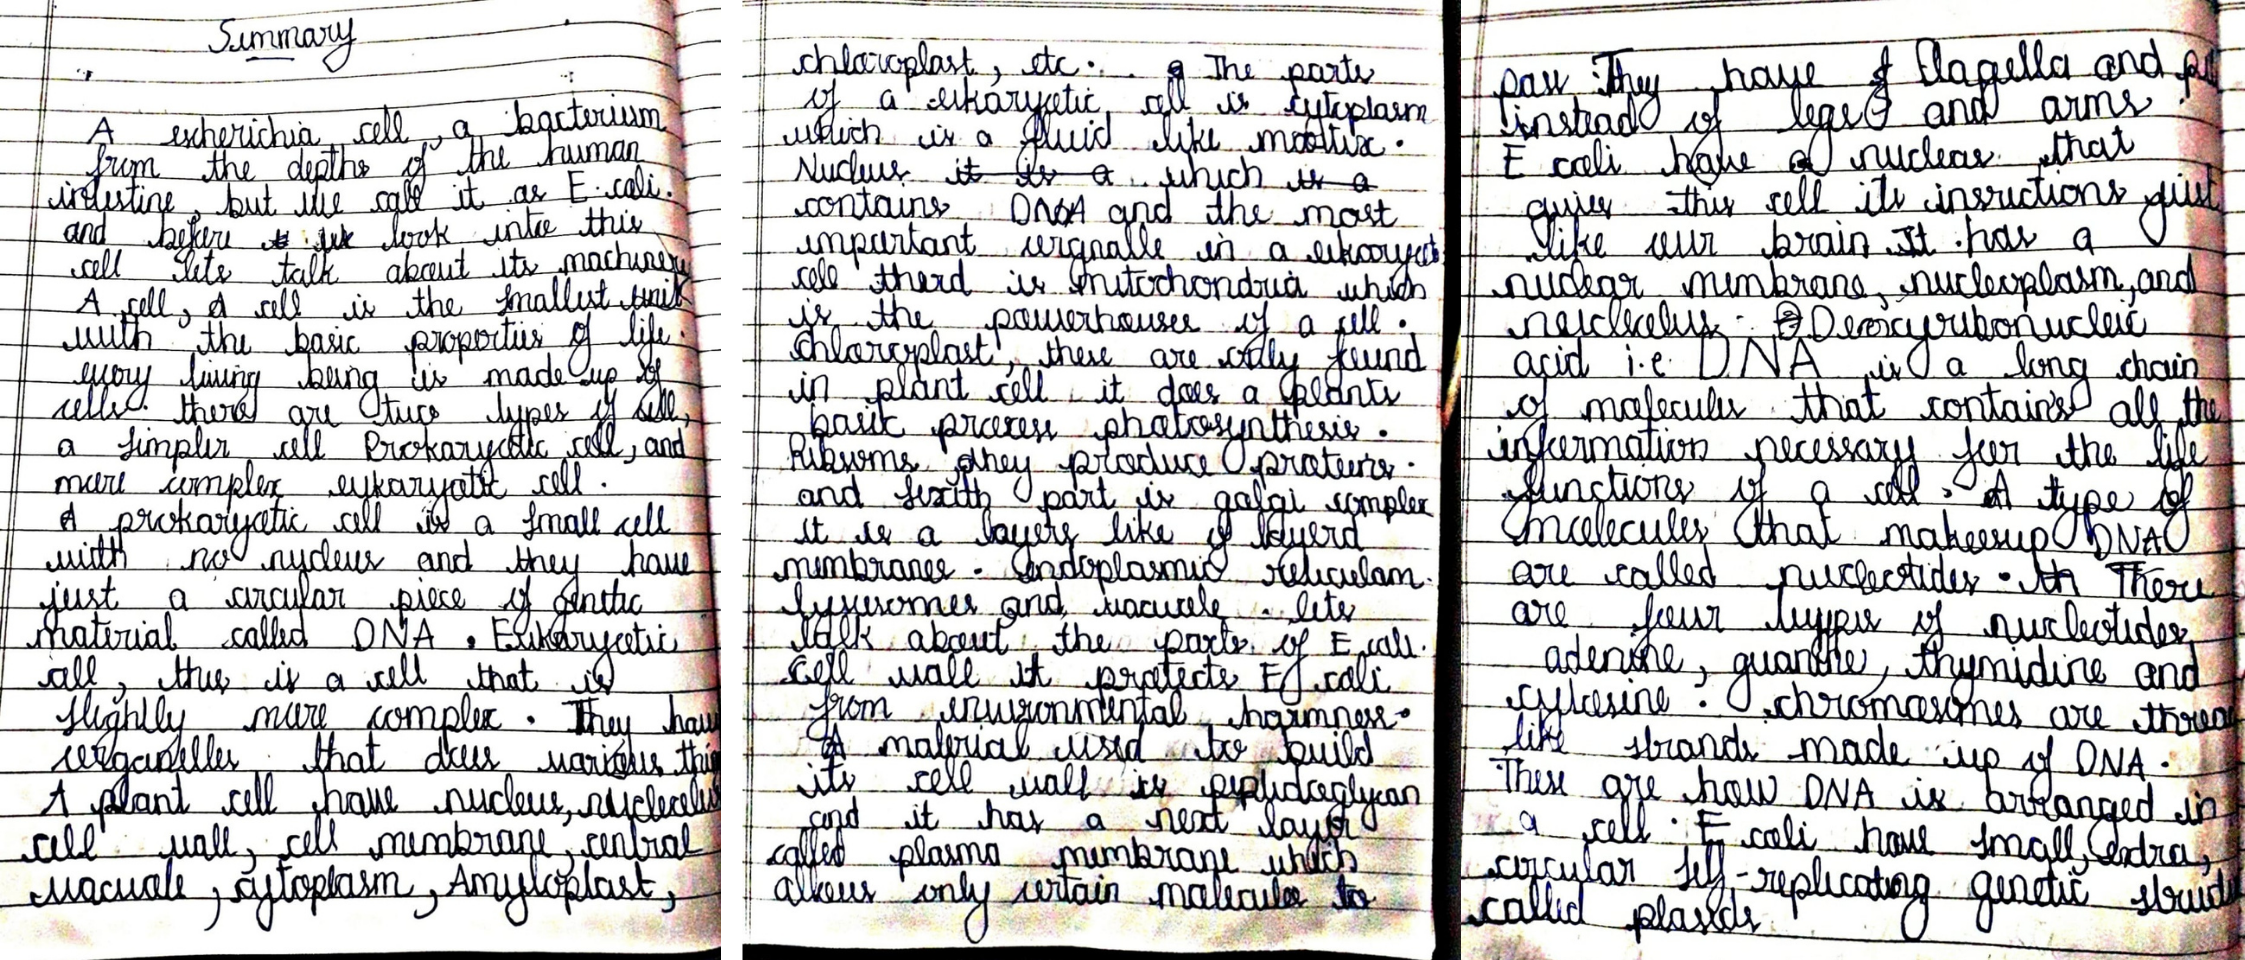 Summary
A escherichia cell, a bacterium
from the depths of the human
intestine, but we call it as E. coli.
and before we look into this
cell lets talk about its machinery
A cell, A cell is the smallest unit
with the basic properties of life.
every living being is made up of
cells. there are two types of cell,
a simpler cell Prokaryotic cell, and
more complex eykaryotic cell.
A prokaryotic cell is a small cell
with no nucleus and they have
just a circular piece of genetic
material called DNA. Eukaryotic
cell, this is a cell that is
slightly more complex. They have
organelles that does various
A plant cell have nucleus,
cell wall, cell membrane, central
vacuole, cytoplasm, Amyloplast,
chloroplast, etc. The parts
of a eukaryotic cell is cytoplasm
which is a fluid like
Nucleus it is a which is a
contains DNA and the most
important in a
cell therd is mitochondria which
is the powerhouses of a cell.
chloroplast, these are only found
in plant cell it does a plants
basic process photosynthesis.
they produce proteins.
and sixith part is golgi complex
it is a layers like of layerd
membranes. Endoplasmic reticulam.
lysosomes and vacuole. lets
talk about the parts of E coli.
Cell wall it protects E coli
from environmental harmness.
A material used to build
its cell wall is peptidoglycan
and it has a next layer
called plasma membrane which
allows only certain molecules to
pass They have flagella and
instead of legs and arms.
E coli have a nuclear that
gives this cell its insructions just
like our brain It has a
nuclear membrane, nucleoplasm, and
Deoxcyribonucleic
acid i.e DNA is a long chain
of molecules that contains all the
information necessary for the life
functions of a cell. A type of
molecules that makesup DNA
are called nucleotides. There
are four types of nucleotides
adenine, guanine, thymidine and
cytosine. chromosomes are
like strands made up of DNA.
These are how DNA is arranged in
a cell. E coli have small, extra,
circular self-replicating genetic
called